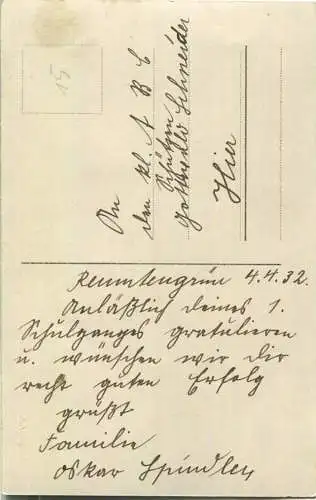 An
den kl. A B C
Schützen
Gotthold Schneider
Hier
15
Reumtengrün 4.4.32.
Anläßlich deines 1.
Schulganges gratulieren
u. wünschen wir dir
recht guten Erfolg
grüßt
Familie
Oskar Spindler